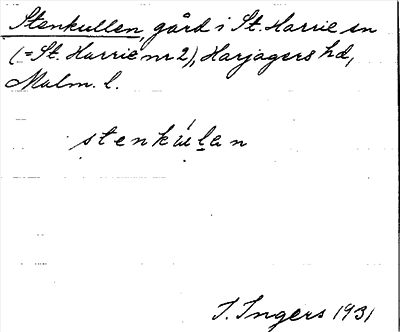 Stenkullen, gård i St. Harrie sn
(= St. Harrie nr 2), Harjagers hd,
Malm. l.
stenkúlan
I. Ingers 1931